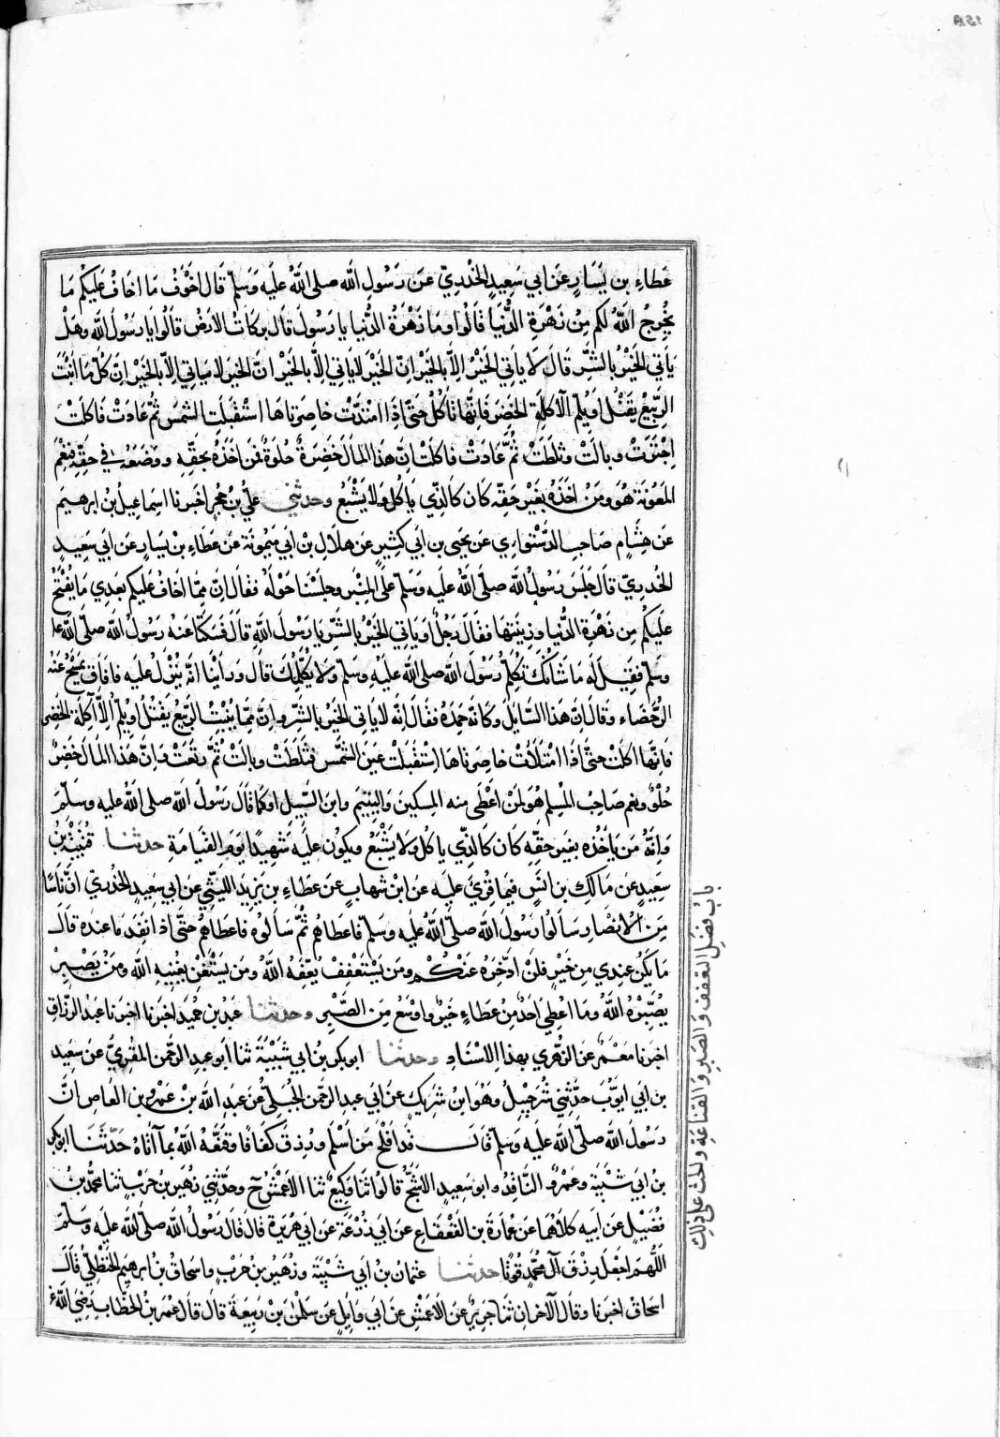 عطاء بن يسار عن ابي سعيد الخدري عن رسول الله صلى الله عليه وسلم قال اخوف ما اخاف عليكم ما
يخرج الله لكم من زهرة الدنيا قالوا وما زهرة الدنيا يا رسول قال بركات الارض قالوا يا رسول الله وهل
ياتي الخير بالشر قال لا ياتي الخير الا بالخير ان الخير لا ياتي الا بالخير ان الخير لا ياتي الا بالخير ان كل ما انبت
الربيع يقتل او يلم الا اكلة الخضر فانها تاكل حتى اذا امتدت خاصرتاها استقبلت الشمس ثم عادت فاكلت
اجترت وبالت وثلطت ثم عادت فاكلت ان هذا المال خضرة حلوة فمن اخذه بحقه ووضعه في حقه فنعم
المعونة هو ومن اخذه بغير حقه كان كالذي ياكل ولا يشبع وحدثني علي بن حجر اخبرنا اسماعيل بن ابرهيم
عن هشام صاحب الدستوايي عن يحيى بن ابي كثير عن هلال بن ابي ميمونة عن عطاء بن يسار عن ابي سعيد
الخدري قال جلس رسول الله صلى الله عليه وسلم على المنبر وجلسنا حوله فقال ان مما اخاف عليكم بعدي ما يفتح
عليكم من زهرة الدنيا وزينتها فقال رجل او ياتي الخير بالشر يا رسول الله قال فسكت عنه رسول الله صلى الله عل
وسلم فقيل له ما شانك تكلم رسول الله صلى الله عليه وسلم ولا يكلمك قال وراينا انه ينزل عليه فافاق يمسح عنه
الرحضاء وقال ان هذا السايل وكانه حمده فقال انه لا ياتي الخير بالشر وان مما ينبت الربيع يقتل او يلم الا اكلة الخضر
فانها اكلت حتى اذا امتلات خاصرتاها استقبلت عين الشمس فثلطت وبالت ثم رتعت وان هذا المال خضر
حلو ونعم صاحب المسلم هو لمن اعطى منه المسكين واليتيم وابن السبيل او كما قال رسول الله صلى الله عليه وسلم
وانه من ياخذه بغير حقه كان كالذي ياكل ولا يشبع ويكون عليه شهيدا يوم القيامة حدثنا قتيبة بن
سعيد عن مالك بن انس فيما قرئ عليه عن ابن شهاب عن عطاء بن يزيد الليثي عن ابي سعيد الخدري ان ناسا
من الانصار سالوا رسول الله صلى الله عليه وسلم فاعطاهم ثم سالوه فاعطاهم حتى اذا نفد ما عنده قال
ما يكن عندي من خير فلن ادخره عنكم ومن يستعفف يعفه الله ومن يستغن يغنيه الله ومن يصبر
يصبره الله وما اعطي احد من عطاء خير واوسع من الصبر وحدثنا عبد بن حميد اخبرنا اخبرنا عبد الرزاق
اخبرنا معمر عن الزهري بهذا الاسناد وحدثنا ابو بكر بن ابي شيبة ثنا ابو عبد الرحمن المقري عن سعيد
بن ابي ايوب حدثني شرحبيل وهو ابن شريك عن ابي عبد الرحمن الحبلي عن عبد الله بن عمرو بن العاص ان
رسول الله صلى الله عليه وسلم قال قد افلح من اسلم ورزق كفافا وقنعه الله بما اتاه حدثنا ابو بكر
بن ابي شيبة وعمرو الناقد وابو سعيد الاشج قالوا ثنا وكيع ثنا الاعمش ح وحدثني زهير بن حرب ثنا محمد بن
فضيل عن ابيه كلاهما عن عمارة بن القعقاع عن ابي زرعة عن ابي هريرة قال قال رسول الله صلى الله عليه وسلم
اللهم اجعل رزق آل محمد قوتا حدثنا عثمان بن ابي شيبة وزهير بن حرب واسحاق بن ابرهيم الحنظلي قال
اسحاق اخبرنا وقال الآخران ثنا جرير عن الاعمش عن ابي وايل عن سلمن بن ربيعة قال قال عمر بن الخطاب رضي الله ع
باب فضل التعفف والصبر والقناعة والحث على ذلك